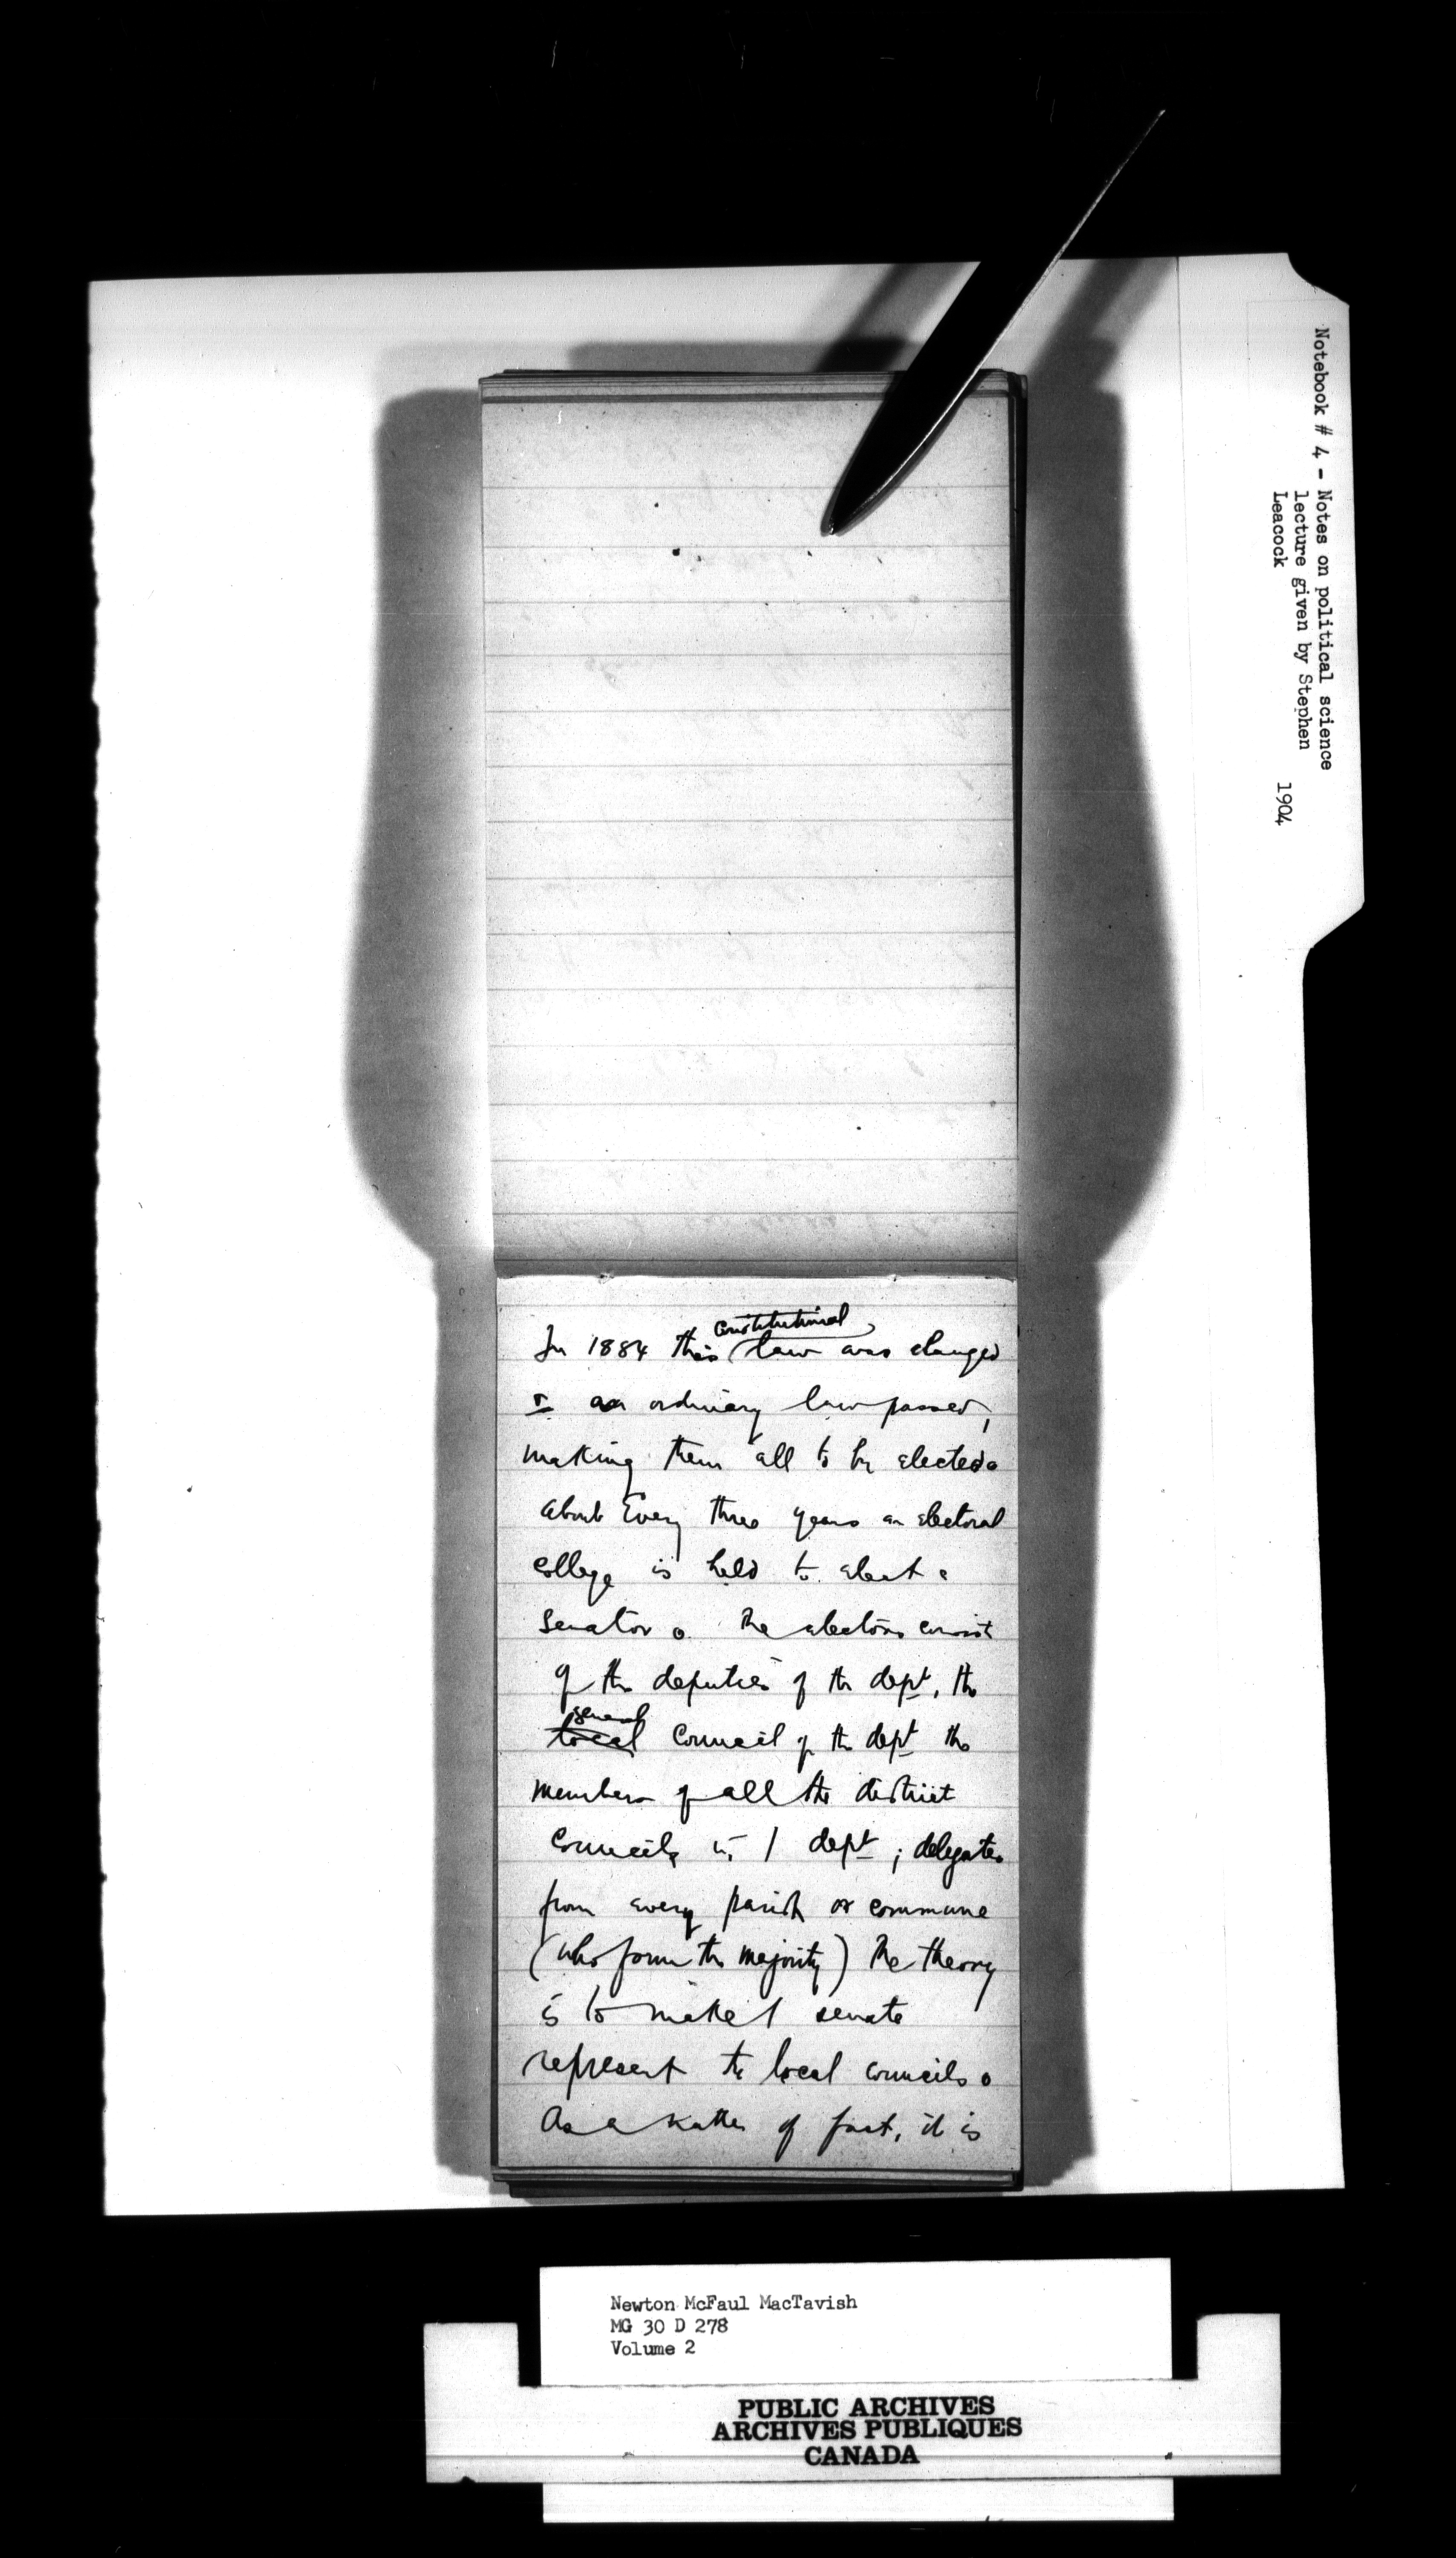 Notebook # 4 - Notes on political science
lecture given by Stephen
Leacock 1904
constitutional
In 1884 this law was changed
& an ordinary law passed,
making them all to be elected.
About Every three years an electoral
college is held to elect a
Senator. The electors consist
of the deputies of the dept, the
general
local Council of the dept the
members of all the district
Councils in / dept; delegates
from every parish or commune
(who form the majority) The theory
is to make / senate
represent the local councils.
As a matter of fact, it is
Newton McFaul MacTavish
MG 30 D 278
Volume 2
PUBLIC ARCHIVES
ARCHIVES PUBLIQUES
CANADA